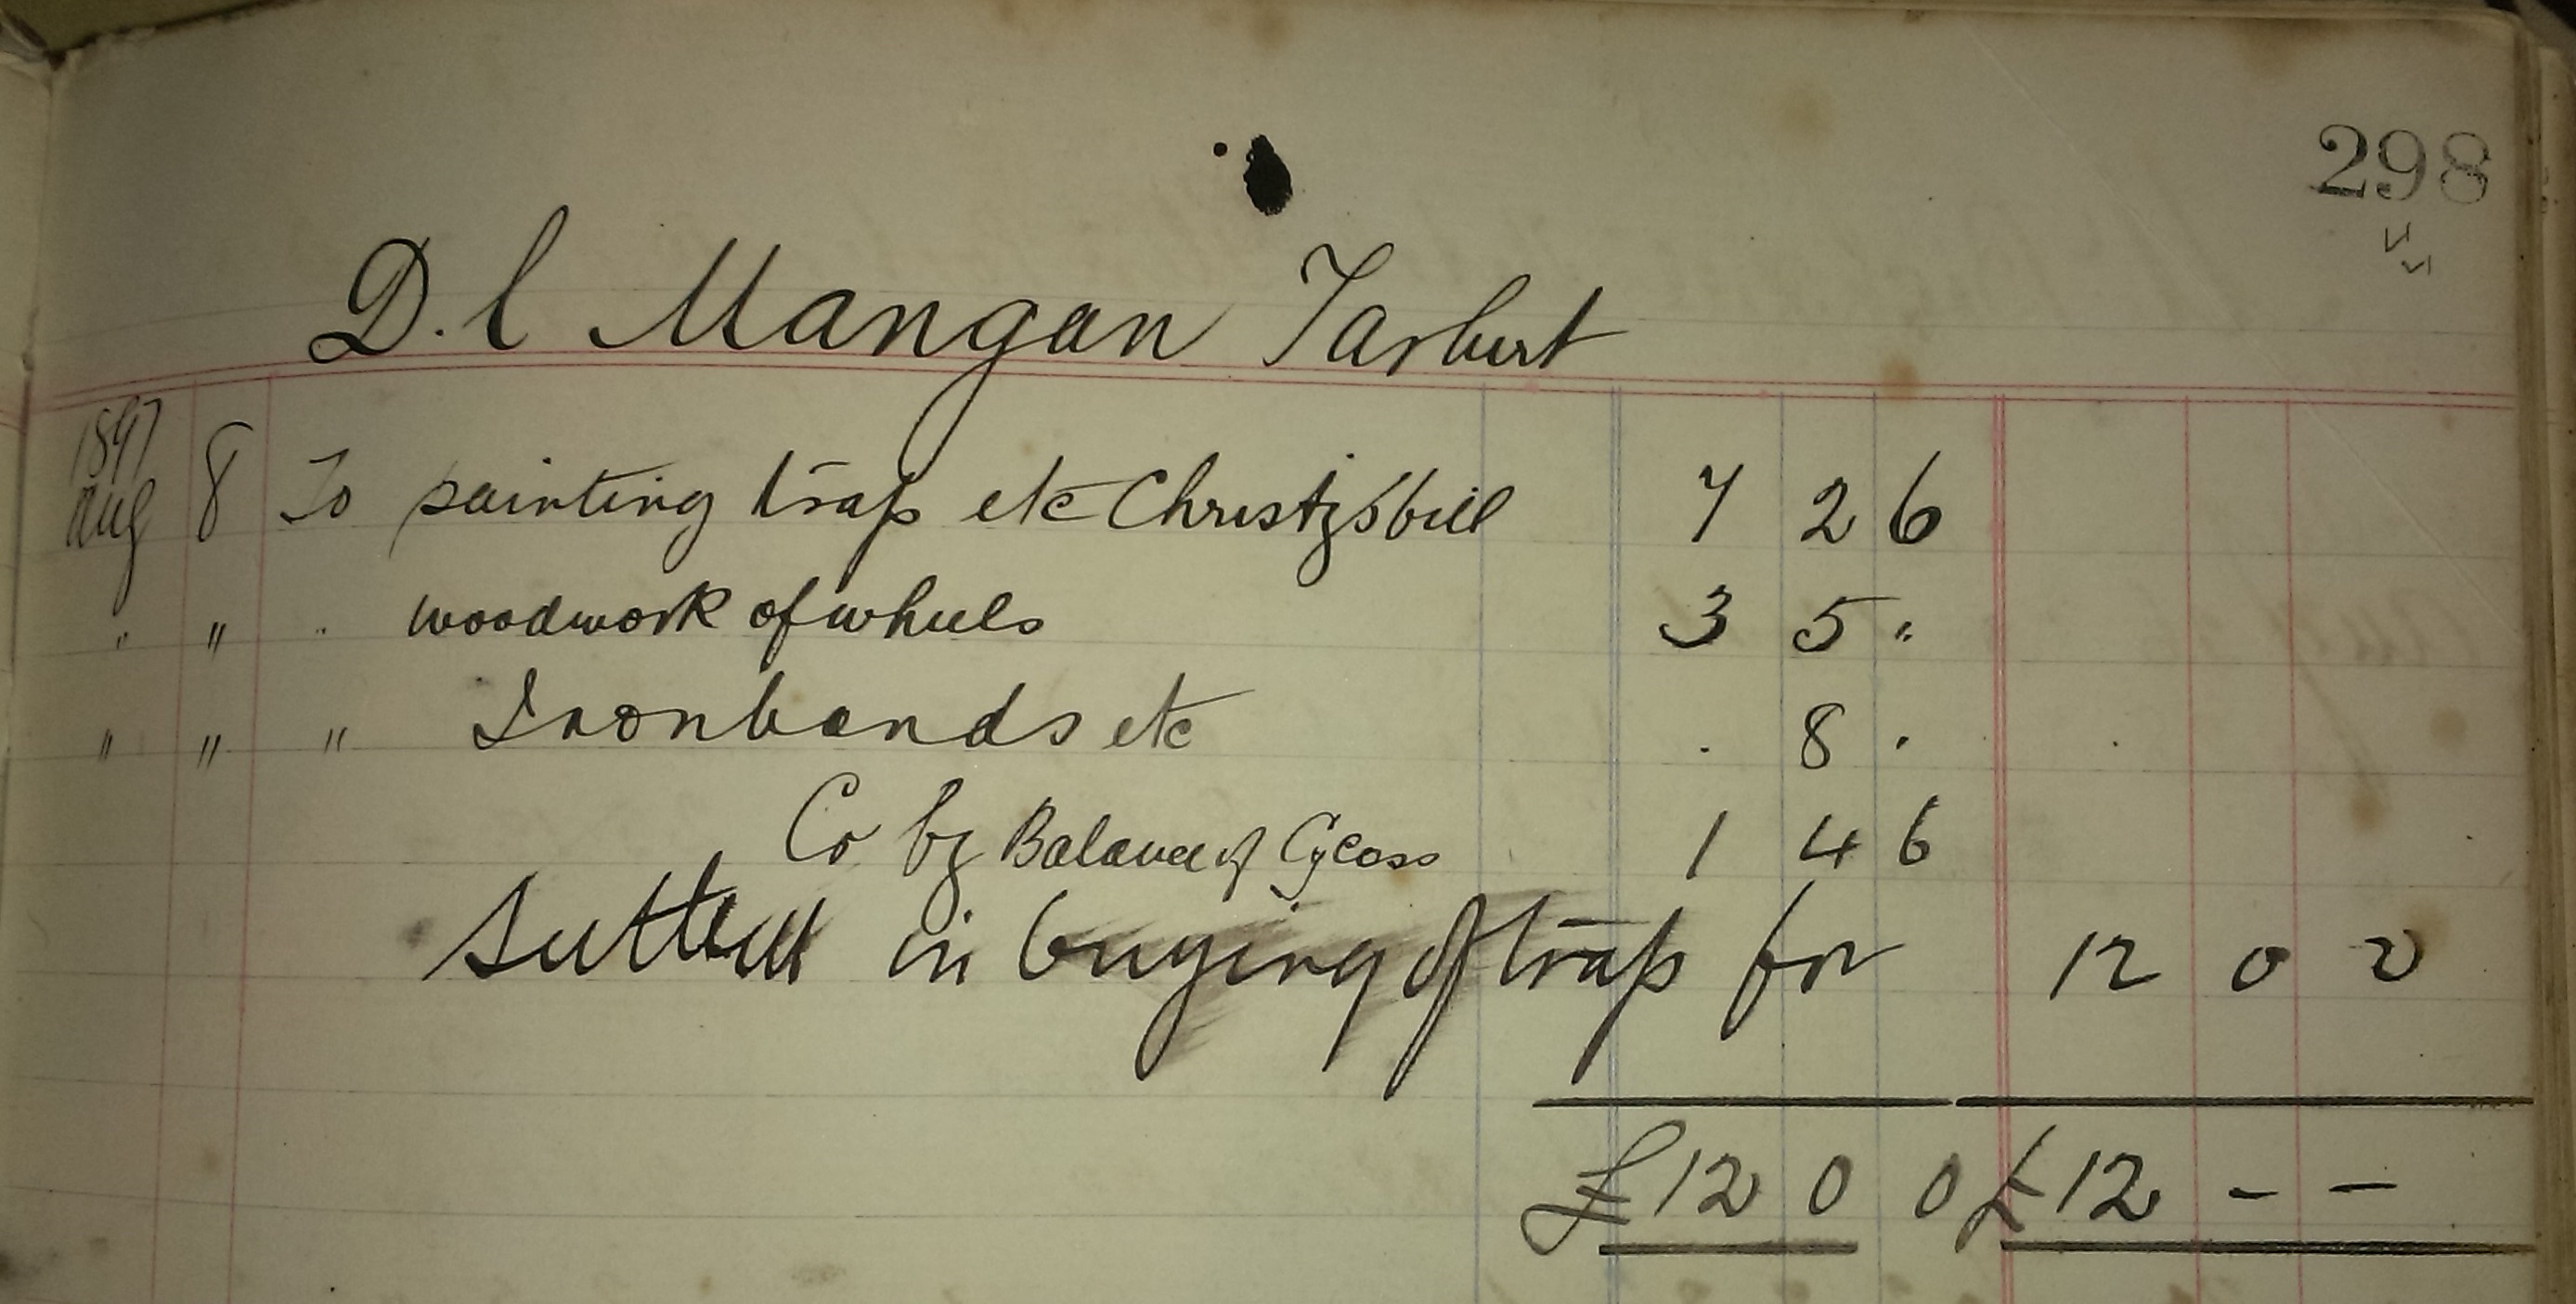 298
D. l Mangan Tarbert
1897
Aug 8 To painting trap etc Christy's bill 7 2 6
" " " woodwork of wheels 3 5 "
" " " Ironbands etc . 8 .
Cr by Balance of 1 4 6
Settled in buying of trap for 12 0 0
£12 0 0 £12 - -